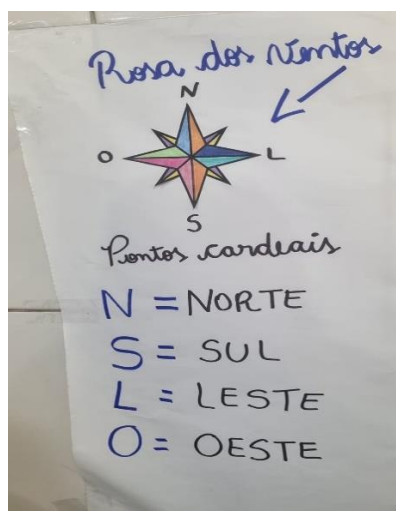 Rosa dos Ventos
N
O L
S
Pontos cardeais
N = NORTE
S = SUL
L = LESTE
O = OESTE